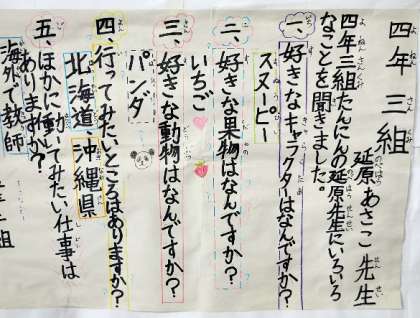 四年三組
延原あさこ先生
四年三組たんにんの延原先生にいろいろ
なことを聞きました。
一、好きなキャラクターはなんですか?
スヌーピー
二、好きな果物はなんですか?
いちご
三、好きな動物はなんですか?
パンダ
四、行ってみたいところはありますか?
北海道、沖縄県
五、ほかに働いてみたい仕事は
ありますか?
海外で教師